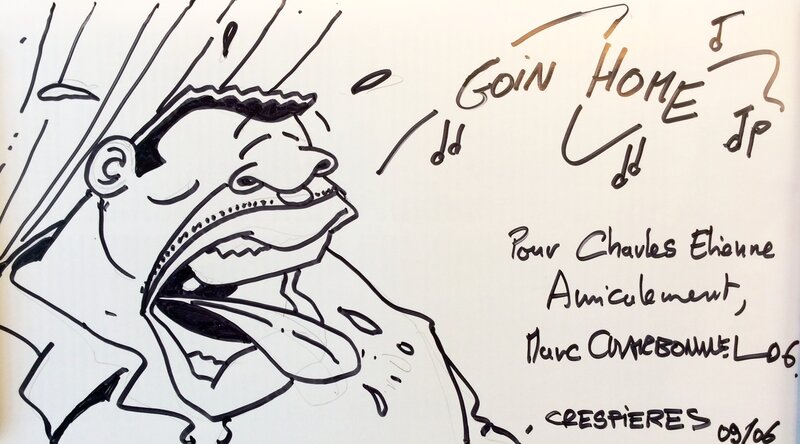 GOIN HOME
Pour Charles Etienne
Amicalement,
Marc CHARBONNEL 06.
CRESPIERES 09/06